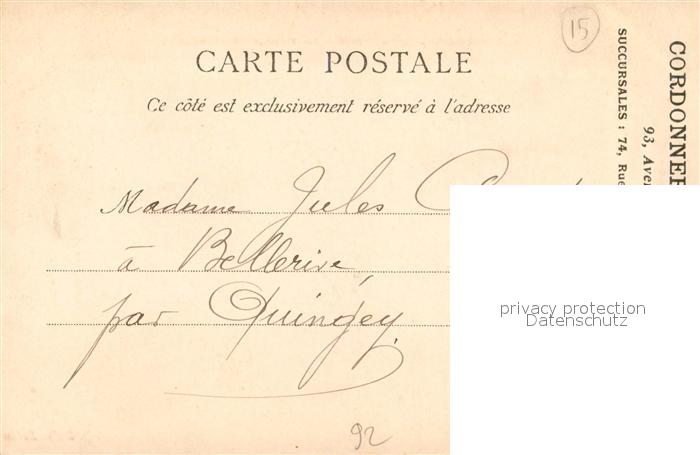 15
CARTE POSTALE
Ce côté est exclusivement réservé à l'adresse
Madame Jules
à Bellerive,
par Quingey.
92
CORDONNER
93, Ave
SUCCURSALES : 74, Rue
privacy protection
Datenschutz